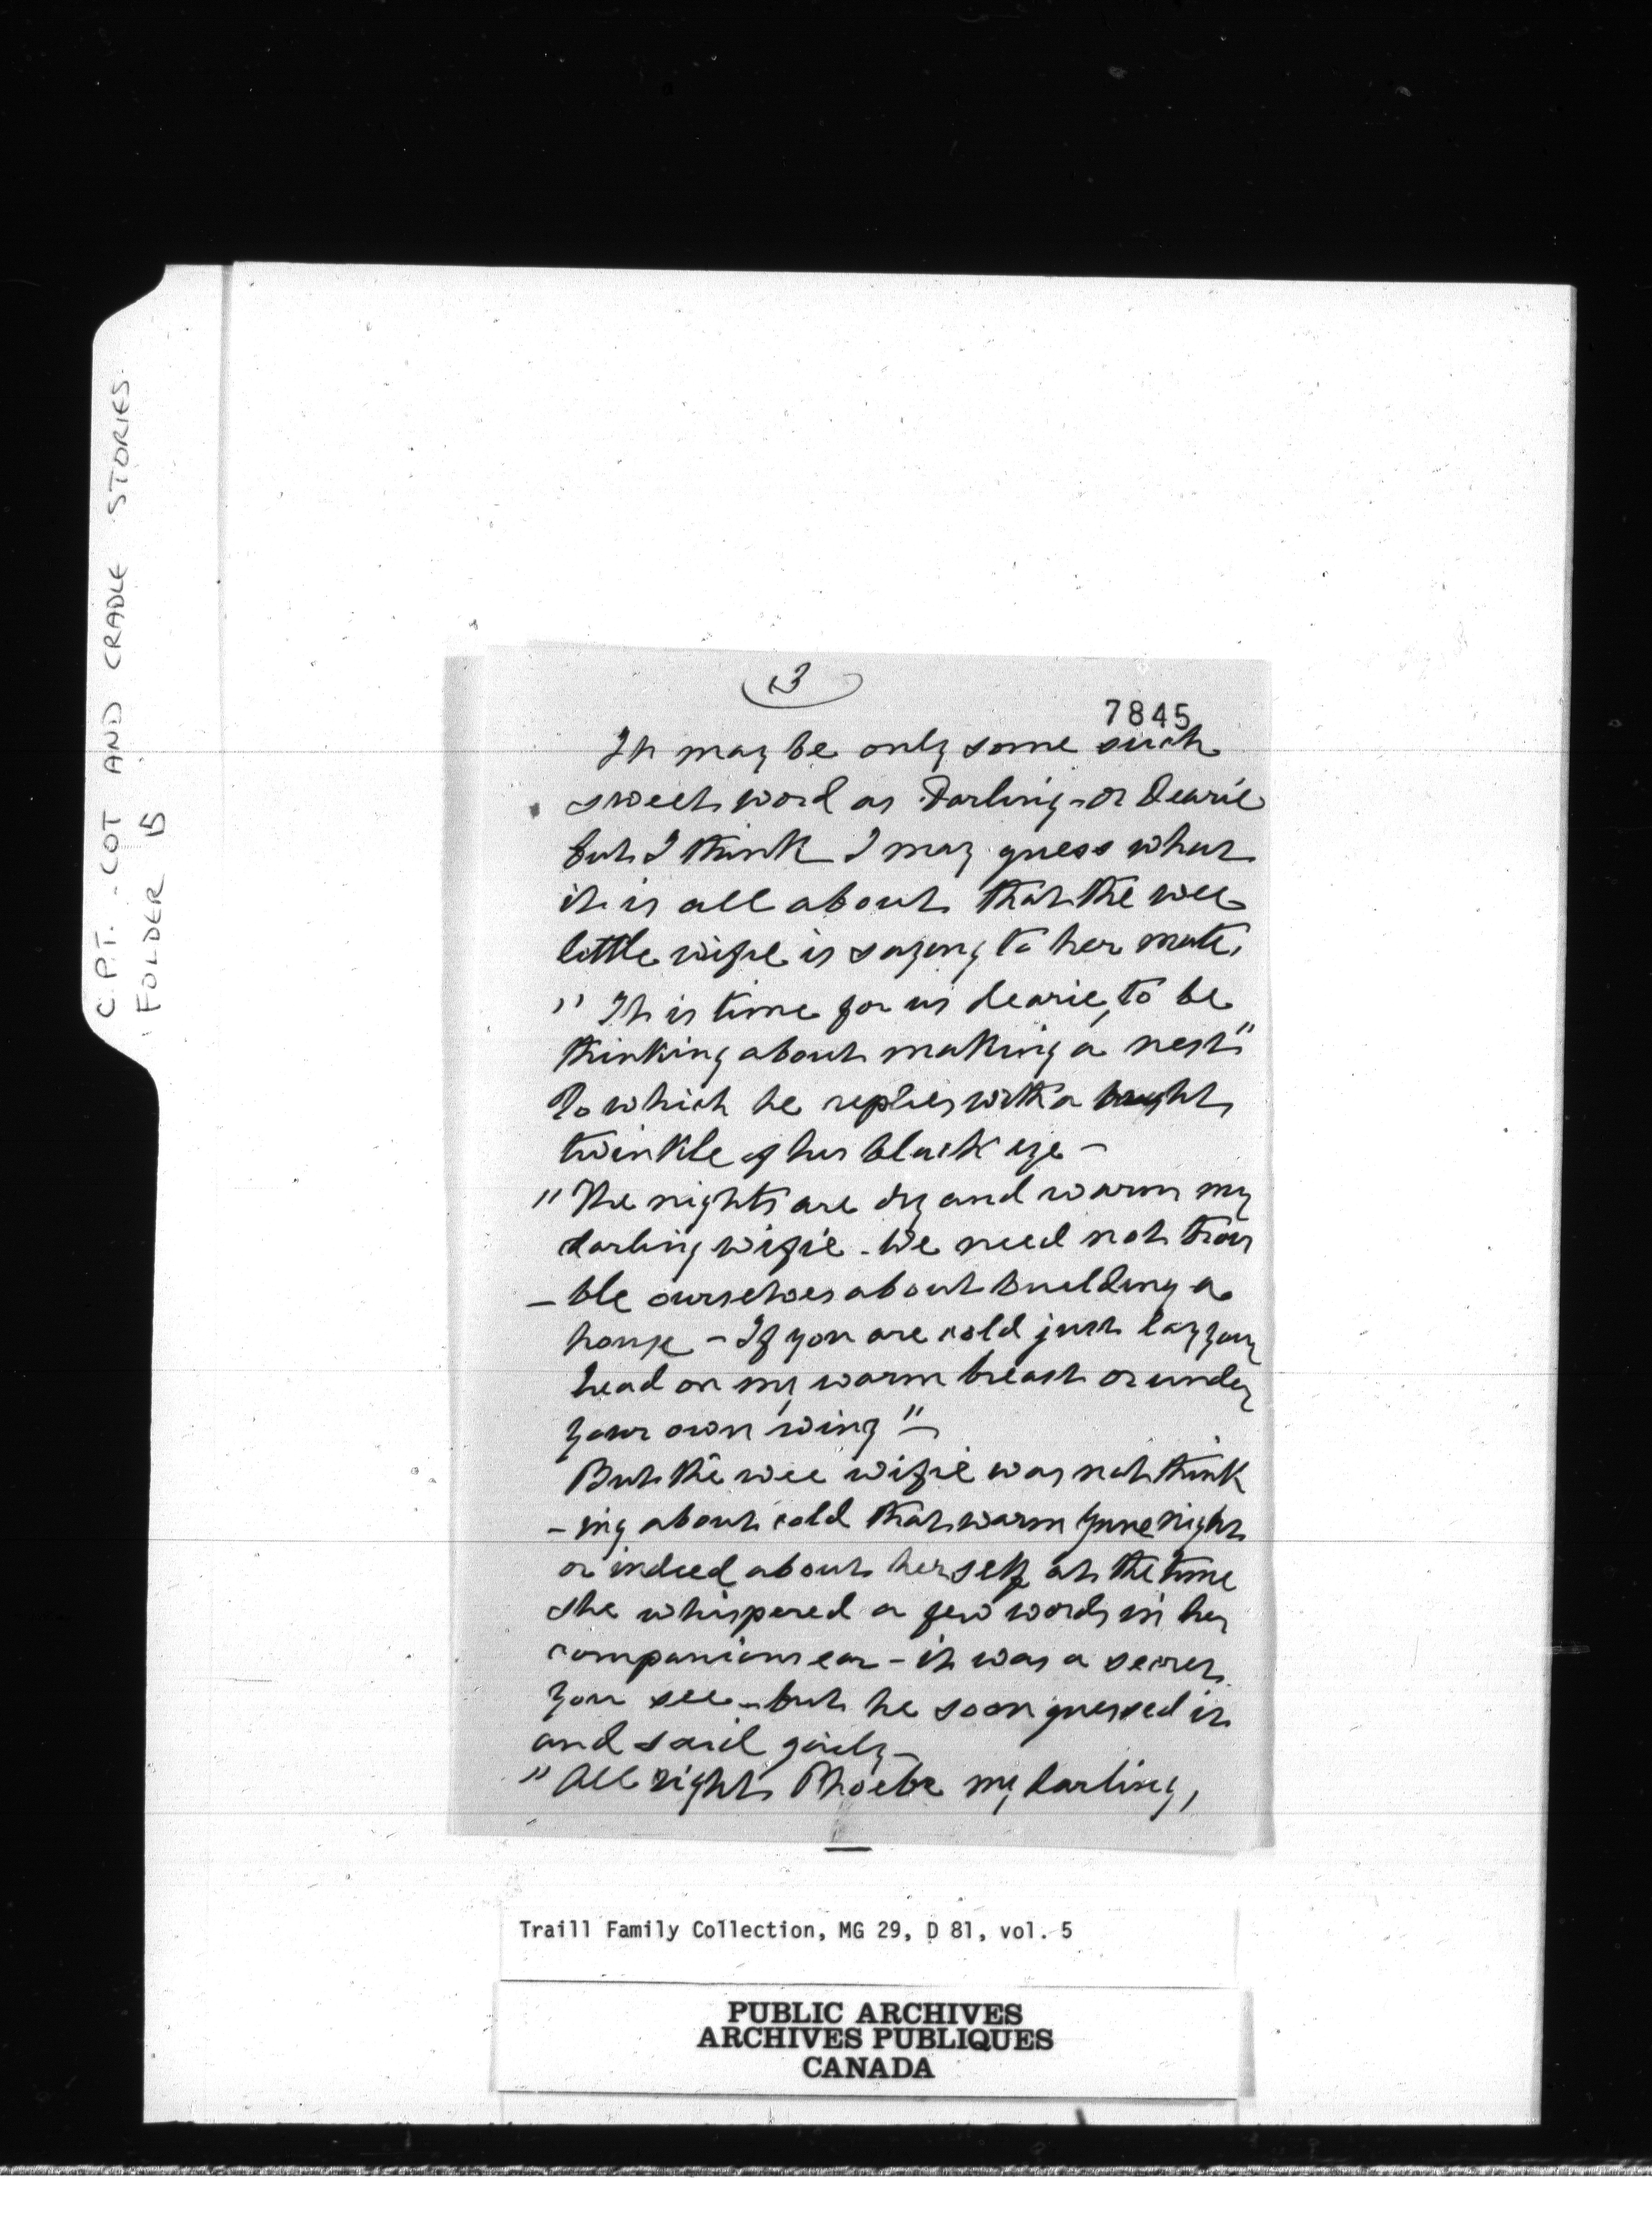 C.P.T. - COT AND CRADLE STORIES.
FOLDER 15
3
7845
It may be only some such
sweet word as Darling - or Dearie
but I think I may guess what
it is all about that the wee
little wifie is saying to her mate,
" It is time for us dearie, to be
thinking about making a nest"
To which he replies with a bright
twinkle of his black eye -
" The nights are dry and warm my
darling wifie - We need not trou
- ble ourselves about building a
house - If you are cold just lay your
head on my warm breast or under
your own wing" -
But the wee wifie was not think
- ing about cold that warm June night
or indeed about herself at the time
she whispered a few words in her
companions ear - it was a secret
you see - but he soon guessed it
and said gaily -
" All right Phoebe my darling,
Traill Family Collection, MG 29, D 81, vol. 5
PUBLIC ARCHIVES
ARCHIVES PUBLIQUES
CANADA